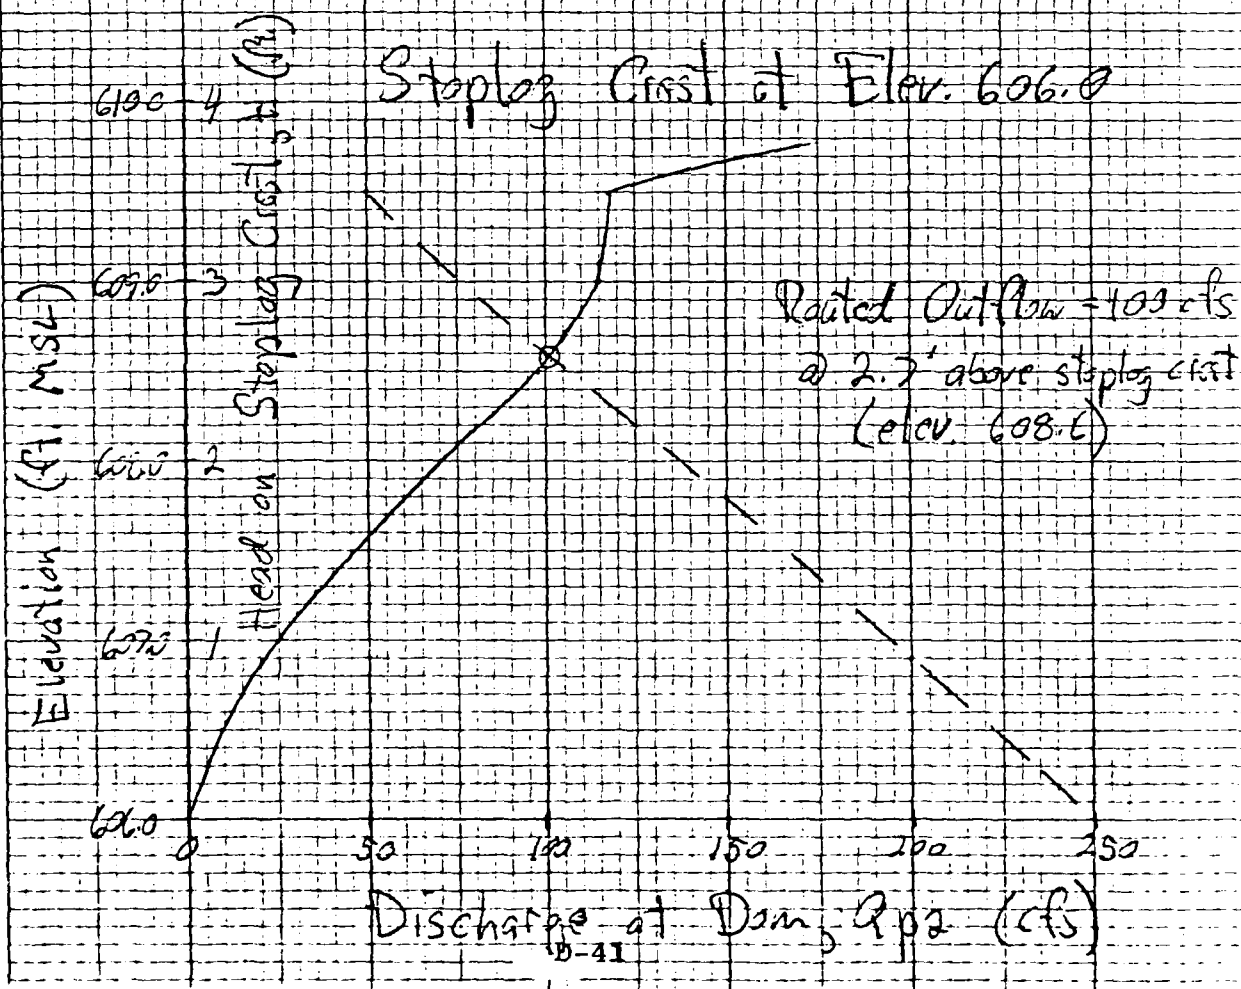 Stoplog Crest at Elev. 606.0
Elevation (ft. MSL)
Head on Stoplog Crest (ft)
610.0 4
609.0 3
608.0 2
607.0 1
606.0
Routed Outflow = 100 cfs
@ 2.7' above stoplog crest
(elev. 608.6)
0 50 100 150 200 250
Discharge at Dam, Qp2 (cfs)
D-41